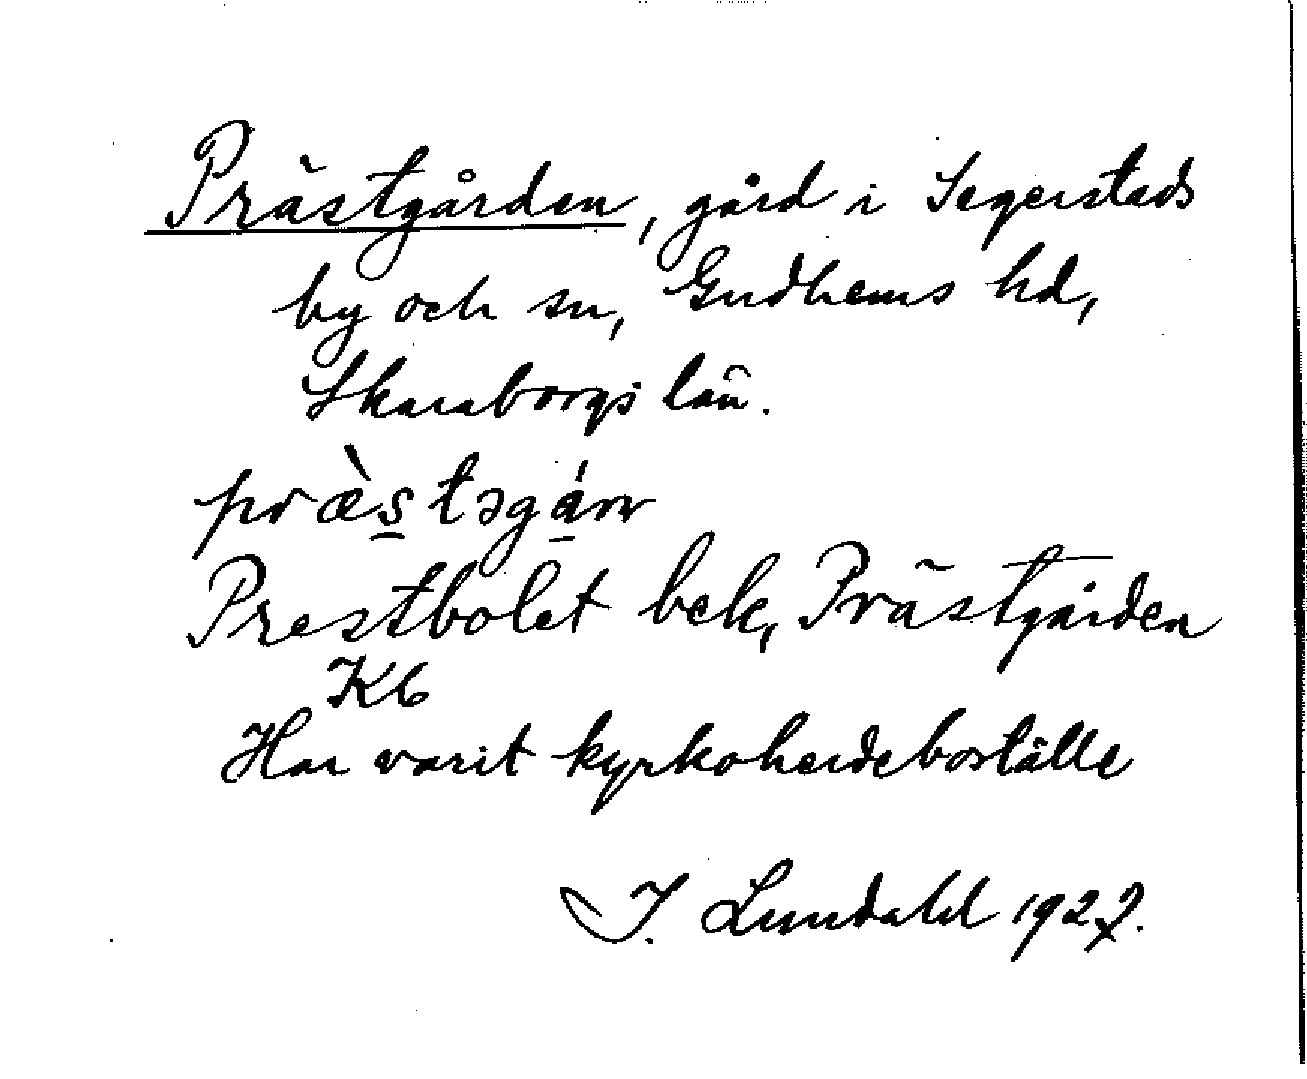 Prästgården, gård i Segerstads
by och sn, Gudhems hd,
Skaraborgs län.
præ̀stəgárr
Prestbolet bek, Prästgården
Kb
Har varit kyrkoherdeboställe
I. Lundahl 1927.